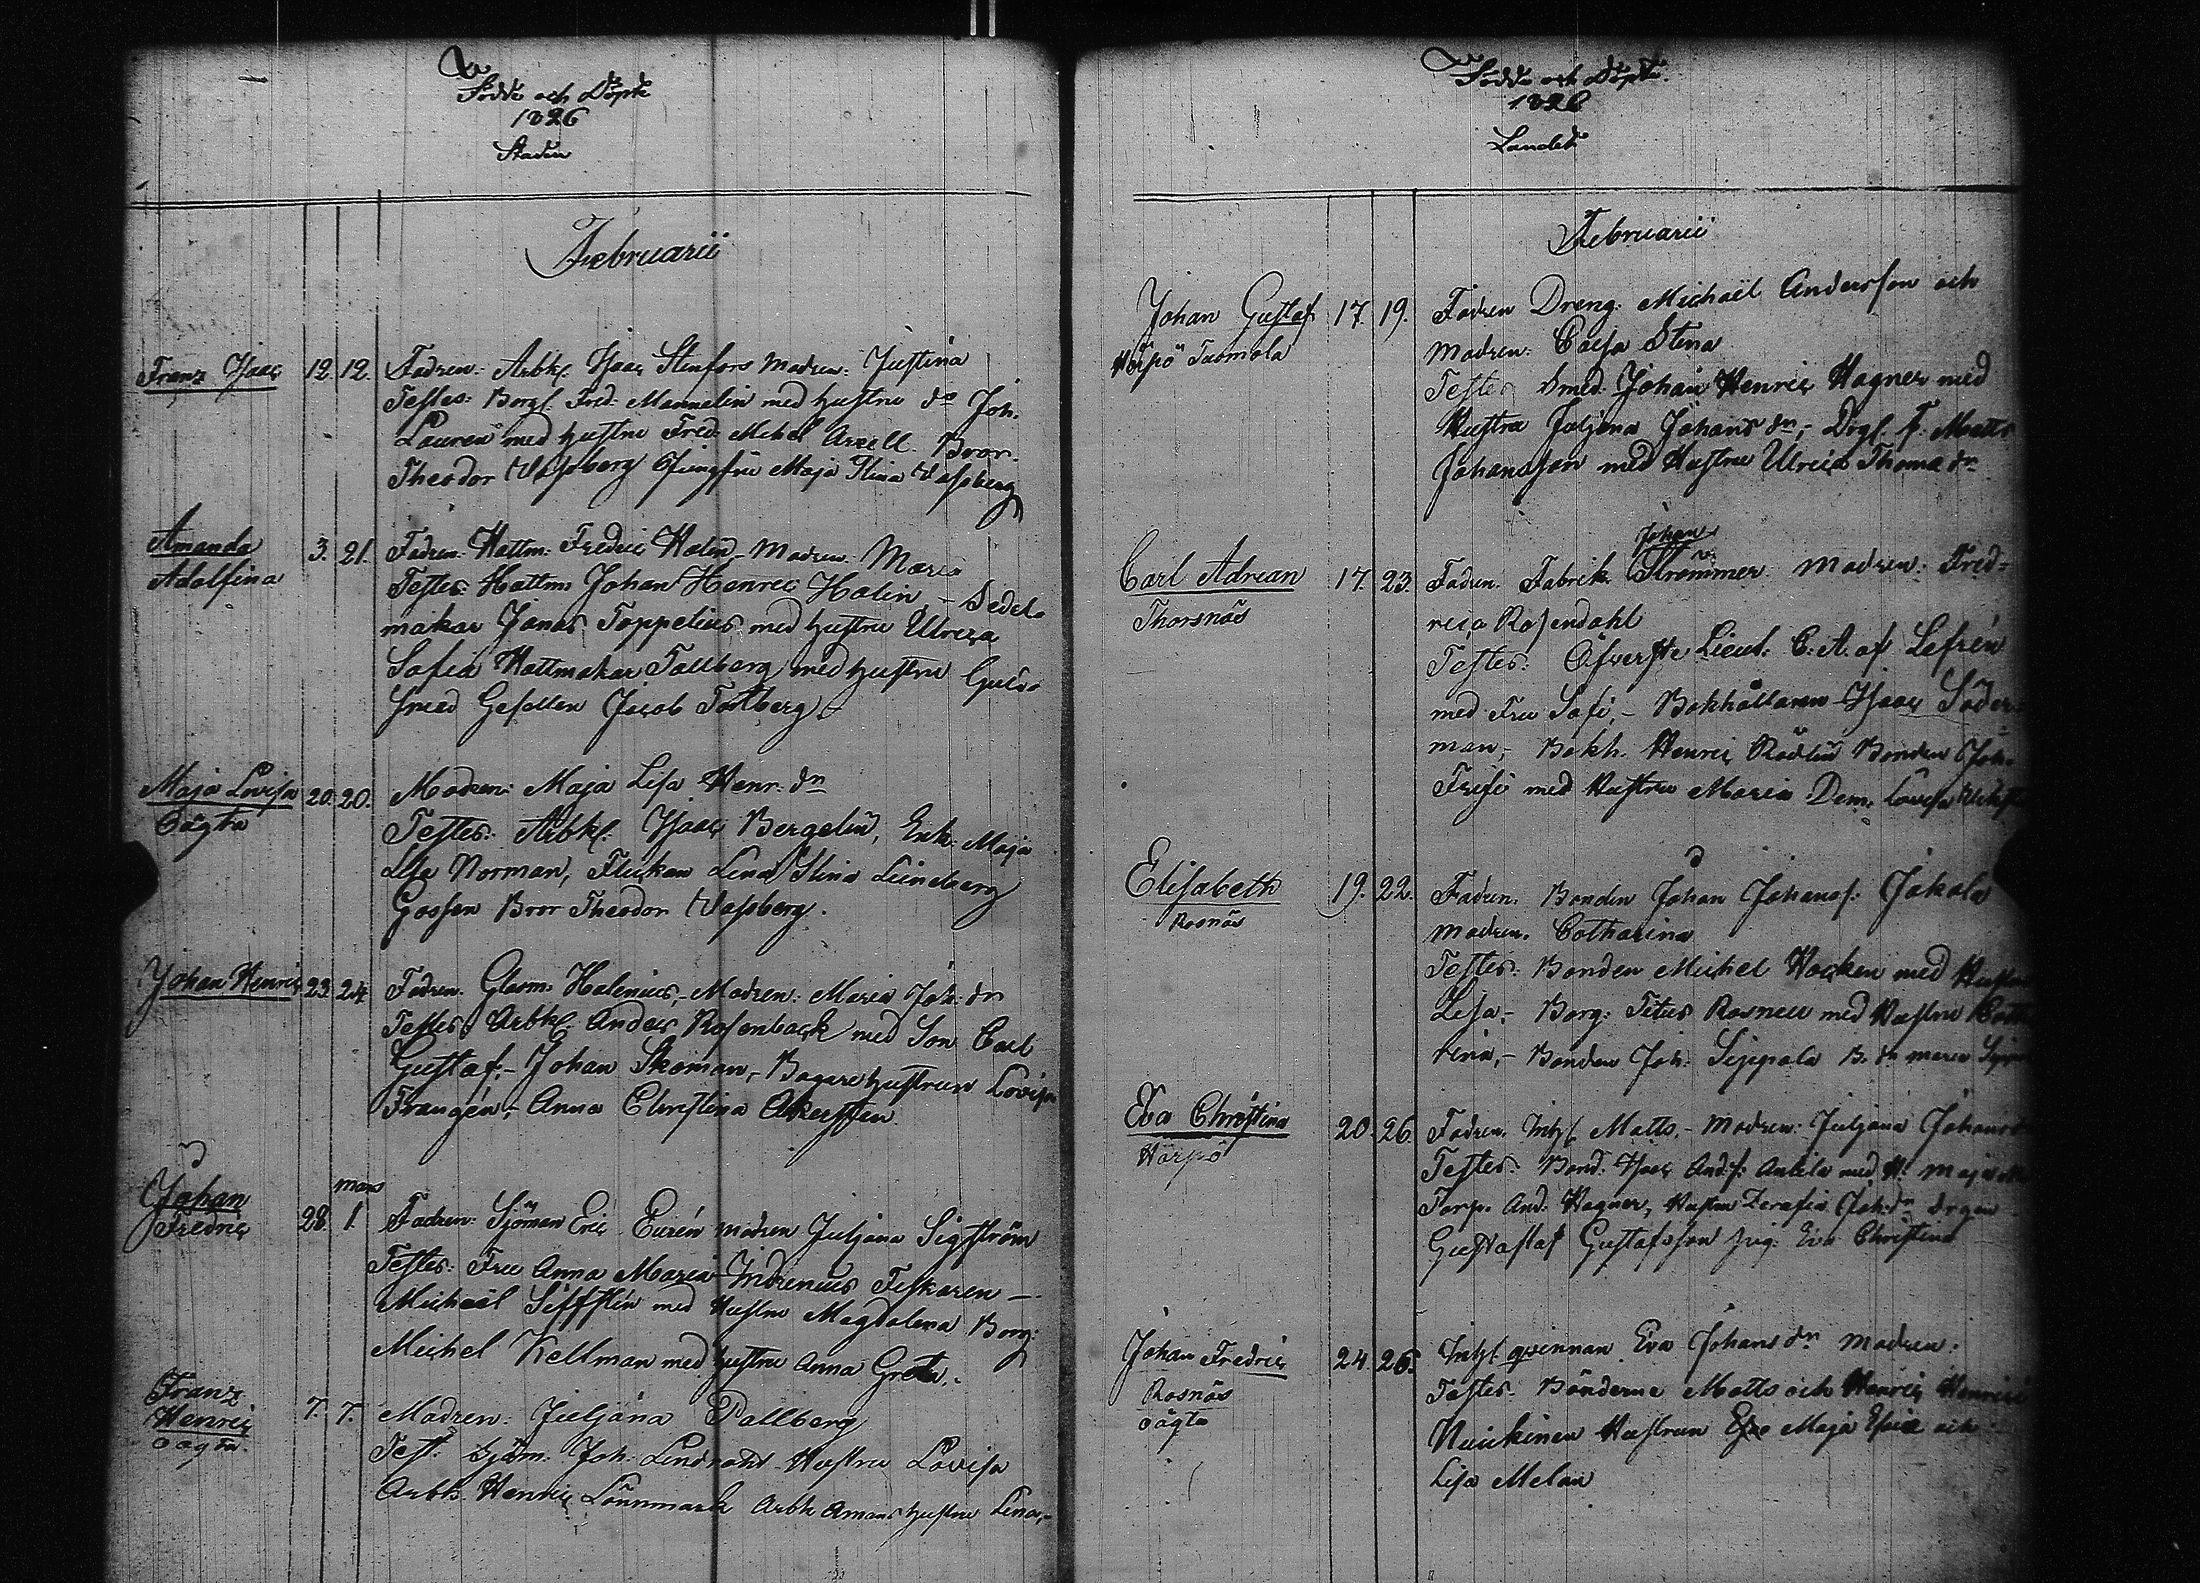 Födde och Döpte
1826
Staden
Februarii
Franz Isaac 12. 12. Fadren: Arbk. Isaac Stenfors Madren: Justina
Testes: Borg. Fred. Mannelin med hustru do Joh.
Lauren med hustru Fred: Mich: Arvell. Bror
Theodor Vassberg Jungfru Maja Stina Vassberg
Amanda 3. 21. Fadren. Hattm: Fredric Holin - Madren. Maria
Adolfina Testes: Hattm Johan Henric Holin, - Sadel-
makar Jonas Toppelius med hustru Ulrica
Sofia Hattmakar Tallberg med hustru Guld-
smed Gesellen Jacob Tallberg
Maja Lovisa 20. 20. Modren: Maja Lisa Henr. dr
Oägta Testes: Arbk. Isaac Bergelin, Enk: Maja
Lisa Norman, Flickan Lena Stina Lundberg
Gossen Bror Theodor Vassberg.
Johan Henric 23. 24 Fadren. Glasm: Halenius, - Madren: Maria Joh: dr
Testes: Arbk. Anders Rosenback med Son Carl
Gustaf, - Johan Skoman, - Bagarehustrun Lovisa
Frangén, - Anna Christina Akersten
Johan mars
Fredric 28. 1. Fadren: Sjöman Eric Eurén madren Juljana Sigström
Testes: Fru Anna Maria Indrenius Fiskaren -
Michaël Siffstén med Hustru Magdalena Borg:
Michel Kellman med hustru Anna Greta.
Franz
Henric 7. 7. Madren: Juljana Pallberg
oägta. Test. Sjöm. Joh. Lindroth Hustru Lovisa
Arbk. Henric Lönnmark Arbk Amans hustru Lena, -
Födde och Döpte.
1826
Landet
Februarii
Johan Gustaf 17. 19. Fadren Dreng. Michaël Andersson och
Hörpö Tuomola Madren: Caisa Stina
Testes Smed. Johan Henric Hagner med
Hustru Juljana Johans dr, - Drgl. F. Matts
Johansson med Hustru Ulrica Thoma dr
Johan
Carl Adrian 17. 23. Fadren. Fabrik. Strömmer. Madren: Fred-
Thorsnäs rica Rosendahl
Testes: Öfverste Lieut: C. A. af Lefrén
med Fru Sofi, - Bokhållaren Isaac Söder-
man, - Bokh. Henric Rödlin Bonden Joh.
Frisi med Hustru Maria Dem. Lovisa
Elisabeth 19. 22. Fadren. Bonden Johan Johanss: Jakola
Rosnäs Madren. Catharina
Testes: Bonden Michel Hocken med Hustru
Lisa, - Borg: Titus Rosnell med Hustru
rina, - Bonden Joh: Seppala B. dr maria
Eva Christina 20. 26. Fadren. Inhl. Matts, - Madren: Juljana Johans
Hörpö Testes: Bond: Isaac And.s: Antila med H. Maja
Torp. And: Hagner, Hustru Serafia Joh: dr drgen
Gustaf Gustafsson pig. Eva Christina
Johan Fredric 24. 26. Inhl qvinnan Eva Johans dr Madren.
Rosnäs Testes. Bönderne Matts och Henric
oägta Nuikinen Hustrun Maja och
Lisa Melan